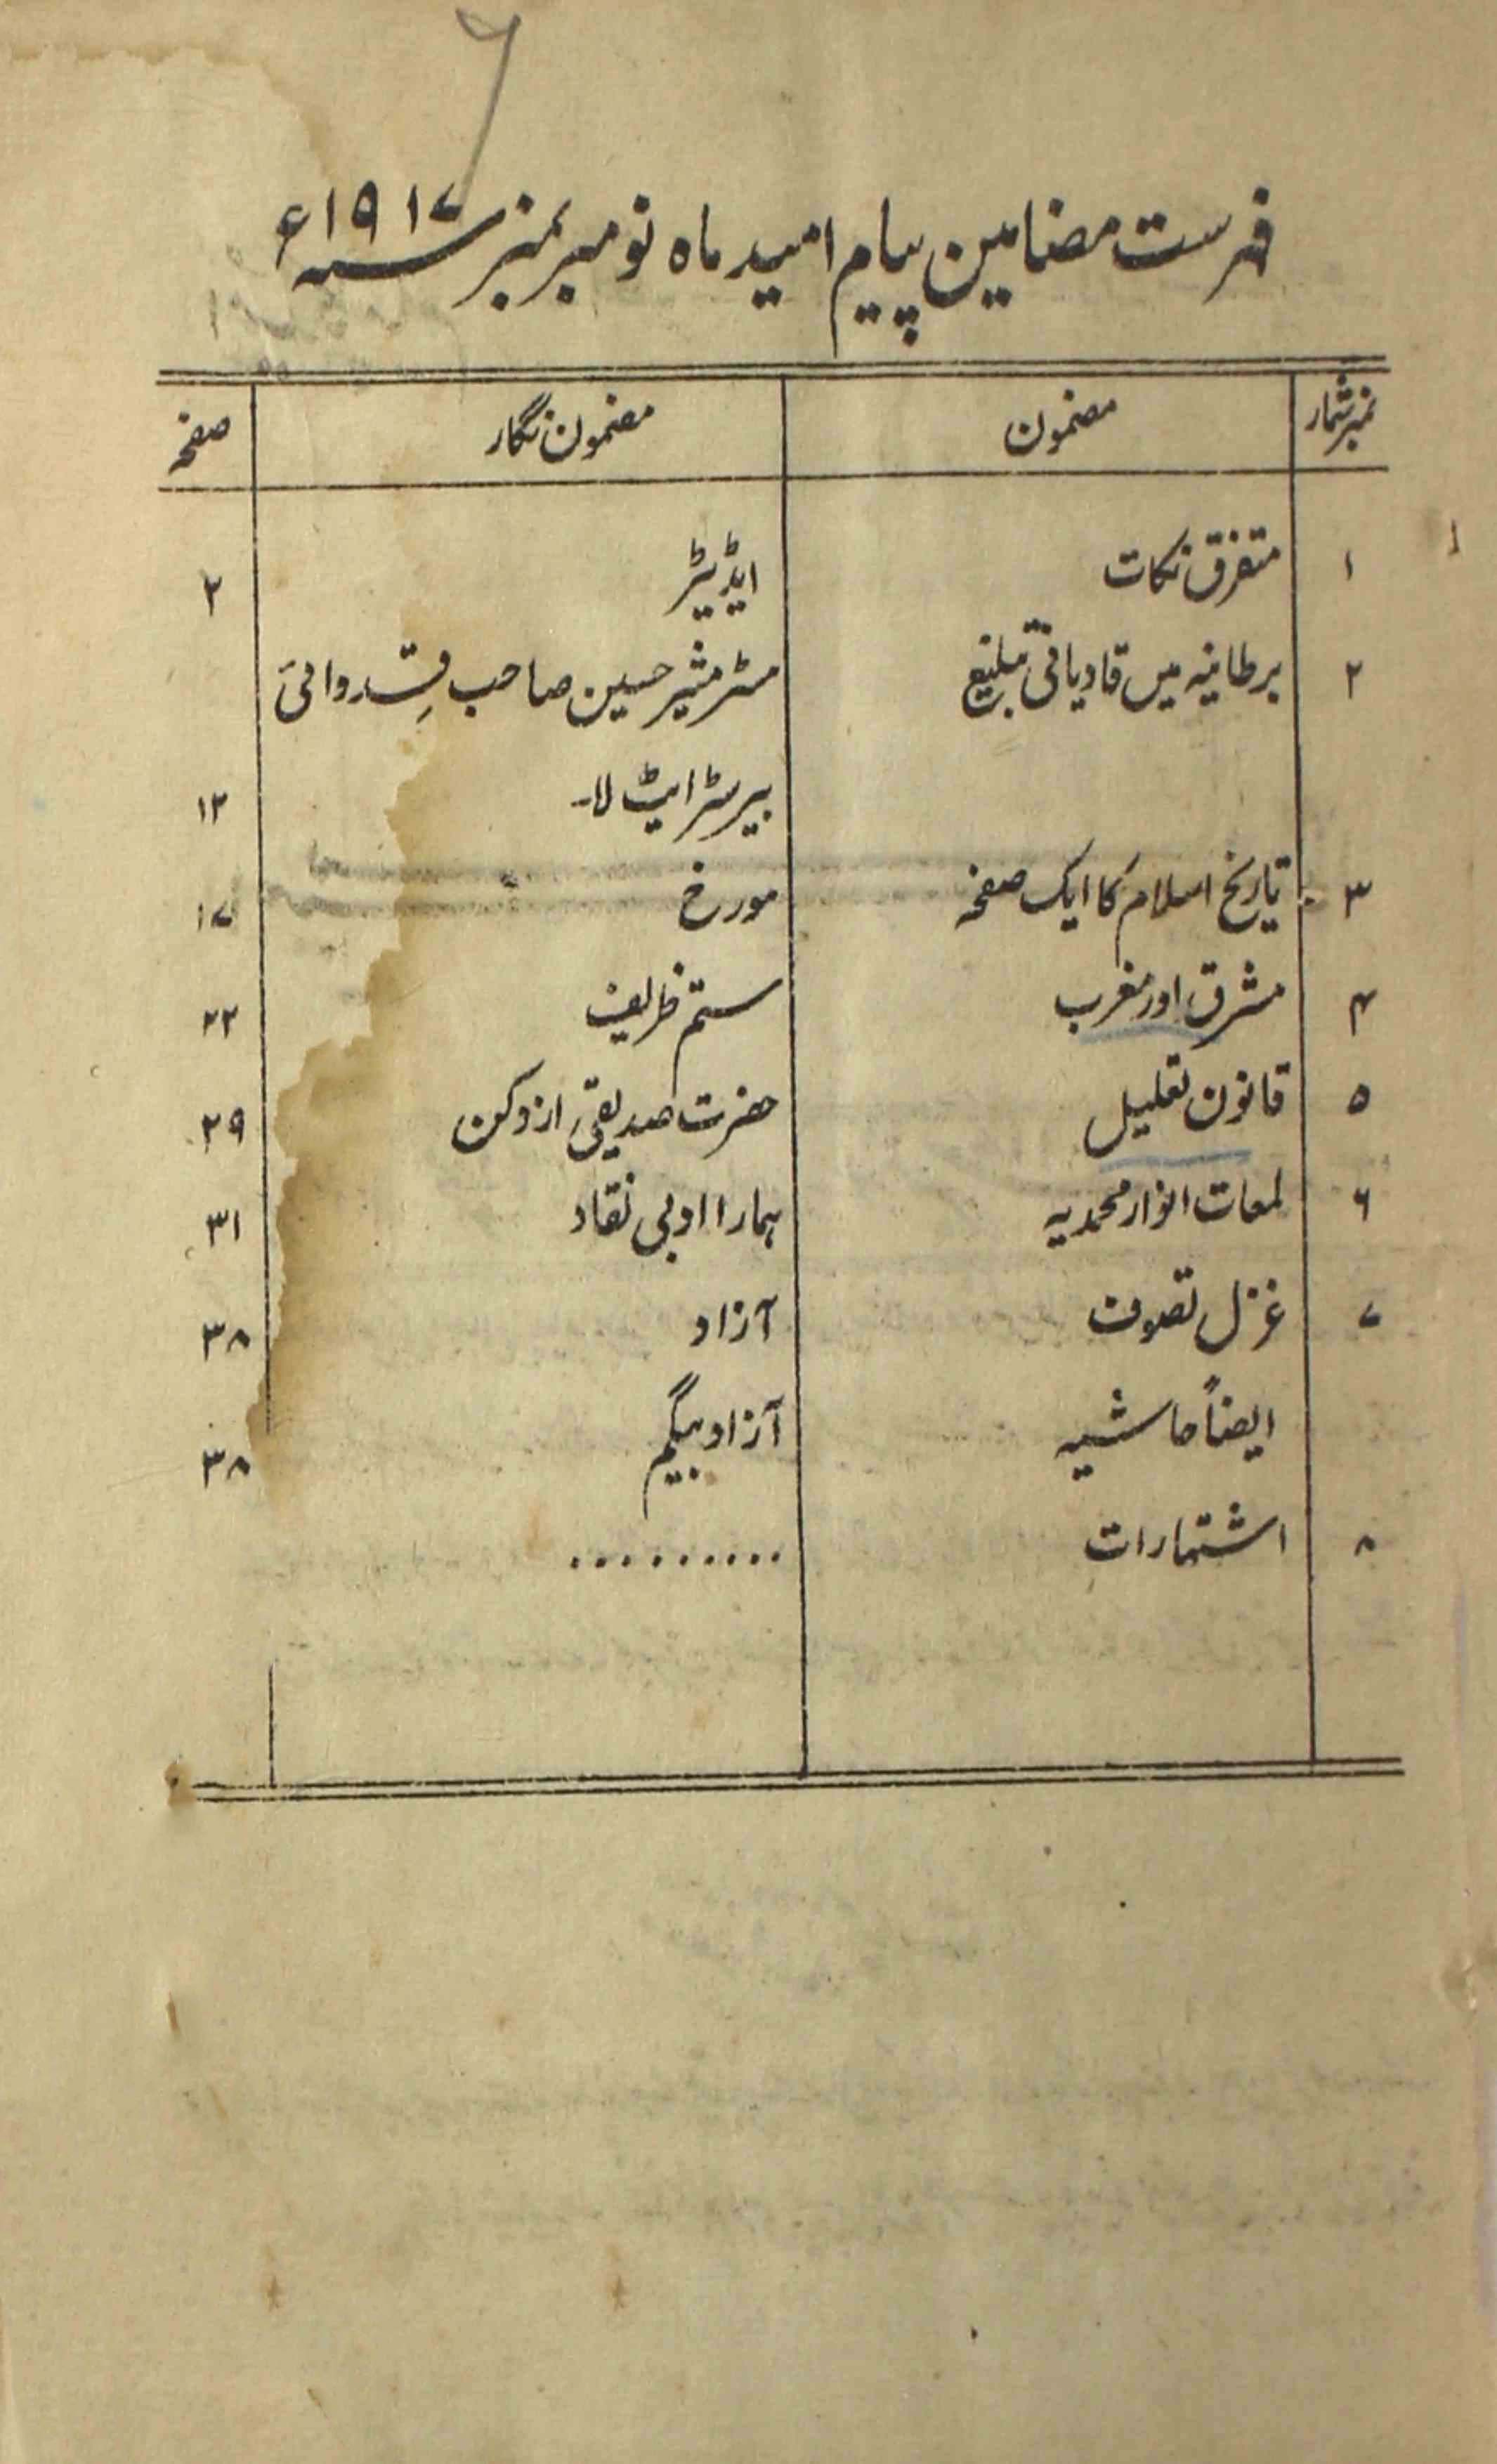 فہرست مضامین پیام امید ماہ نومبر نمبر سنہ ۱۹۱۷ء
نمبر شمار مضمون مضمون نگار صفحہ
۱ متفرق نکات ایڈیٹر ۲
۲ برطانیہ میں قادیانی تبلیغ مسٹر مشیر حسین صاحب قدوائی
بیرسٹر ایٹ لا۔ ۱۲
۳ تاریخ اسلام کا ایک صفحہ مورخ ۱۷
۴ مشرق اور مغرب ستم ظریف ۲۲
۵ قانون تعلیل حضرت صدیقی از دکن ۲۹
۶ لمعات انوار محمدیہ ہمارا ادبی نقاد ۳۱
۷ غزل تصوف آزاد ۳۸
ایضاً حاشیہ آزاد بیگم ۳۸
۸ اشتہارات ۰۰۰۰۰۰۰۰۰